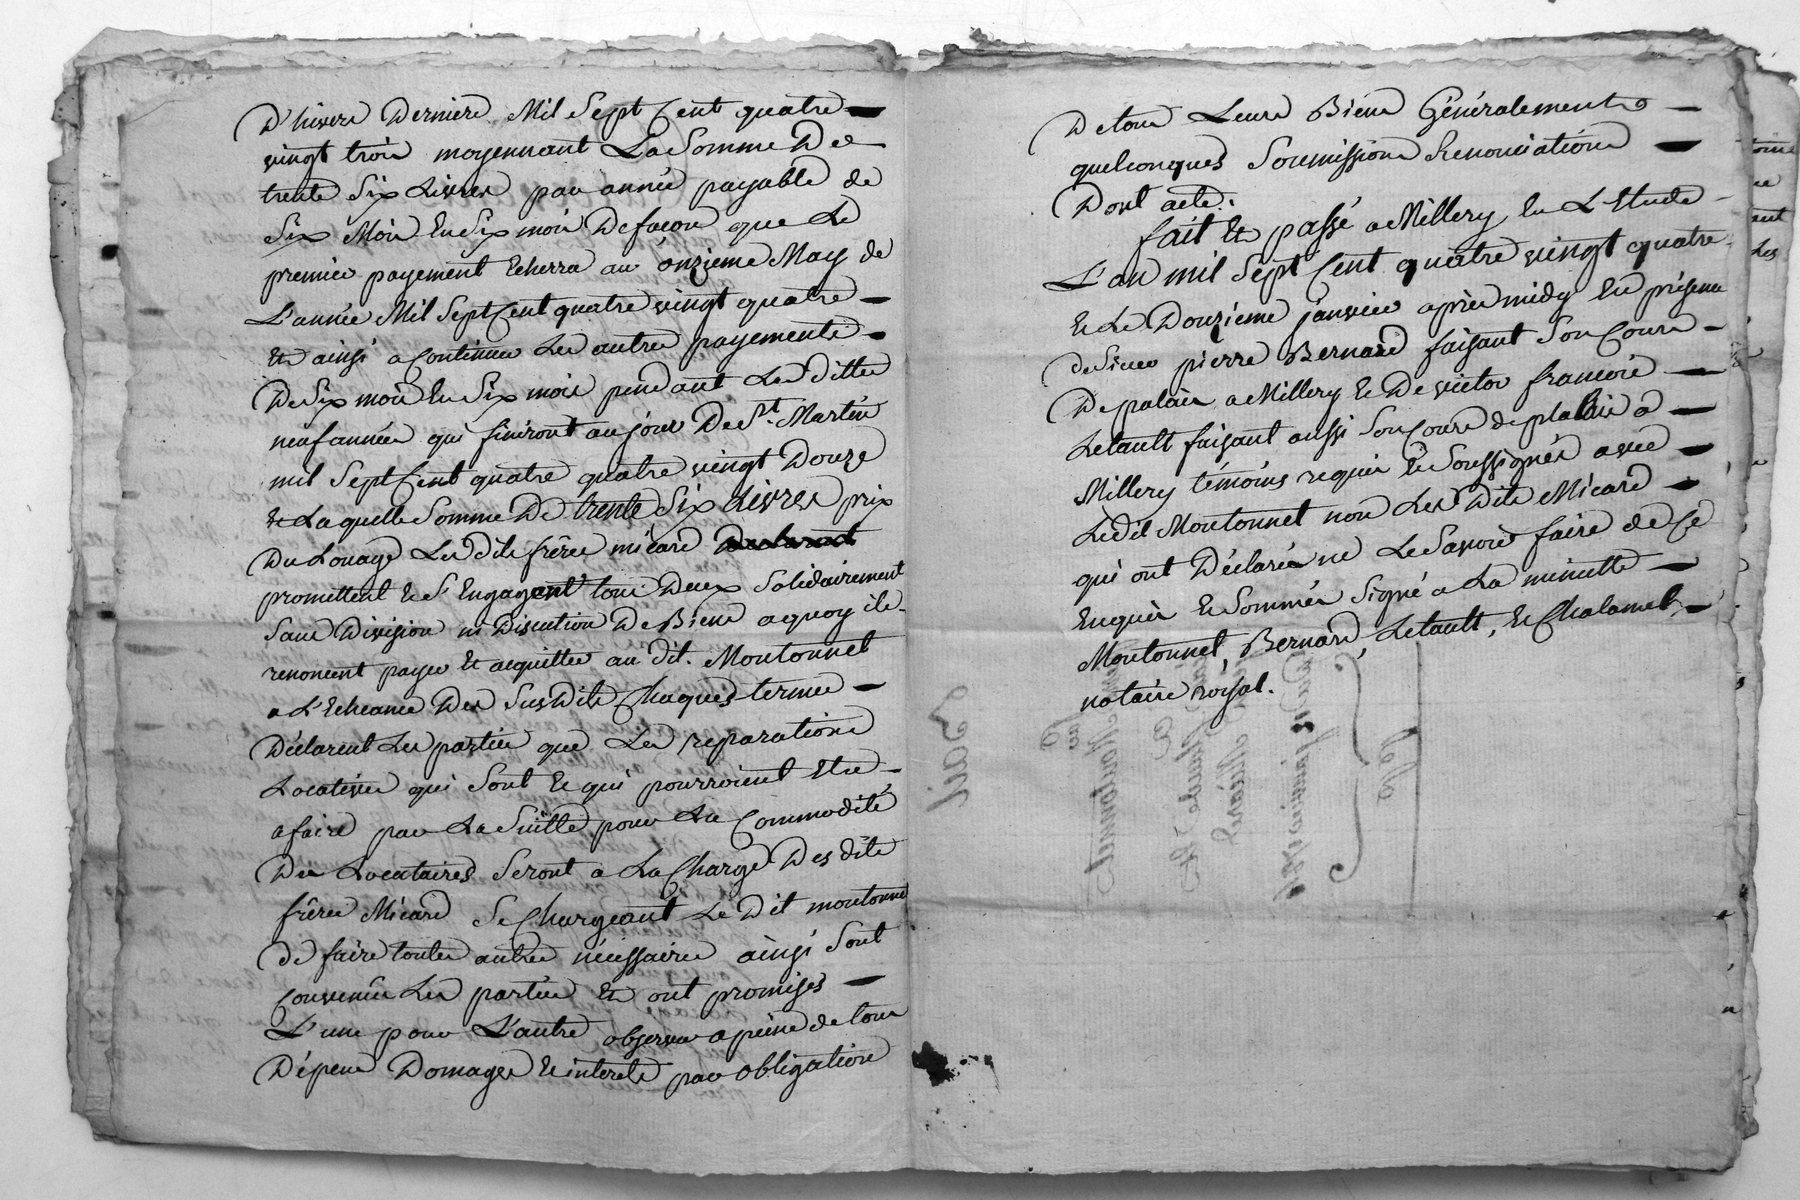 D'hivere Derniere Mil Sept Cent quatre
vingt trois moyennant La Somme De
trente Six Livres par année payable de
Six Mois En Six mois De facon que Le
premier payement Echerra au onzieme May de
L'année Mil Sept Cent quatre vingt quatre
Et ainsi a Continuer Les autres payements
De Six mois En Six mois pendant Les dittes
neuf années qui finiront au jour De St. Martin
mil Sept Cent quatre quatre vingt Douze
Et Laquelle Somme De trente Six Livres prix
Du Louage Les dits freres micard
promettent Et S'Engagent tous Deux Solidairement
Sans Division ni Discution De Biens aquoy ils
renoncent payer Et acquitter au dit. Montonnet
a L'Echeance Des Sus Dits Chaques termes
Déclarent Les parties que Les reparations
Locatives qui Sont Et qui pourroient Etre
a faire par La Suitte pour La Commodité
Des Locataires Seront a La Charge Des dits
freres Micard Se Chargeant Le Dit montonnet
De faire toutes autres nécessaires ainsi Sont
Convenues Les parties Et ont promises
L'une pour L'autre observer a peine de tous
Dépens Domages Et interets par obligation
De tous Leurs Biens Généralements
quelconques Soumissions Renonciations
Dont acte.
fait Et passé a Millery En L'Etude
L'an mil Sept Cent quatre vingt quatre
Et Le Douzieme janvier après midy En présence
de Sieur pierre Bernard faisant Son Cours
De palais a Millery Et De victor francois
Letault faisant aussi Son Cours de plalais a
Millery témoins requis Et Soussignés avec
Ledit Montonnet non Les Dits Micard
qui ont Déclarés ne Le Savoir faire de Ce
Enquis Et Sommés Signé a La minutte
Montonnet, Bernard, Letault, Et Chalamel,
notaire royal.
Bail